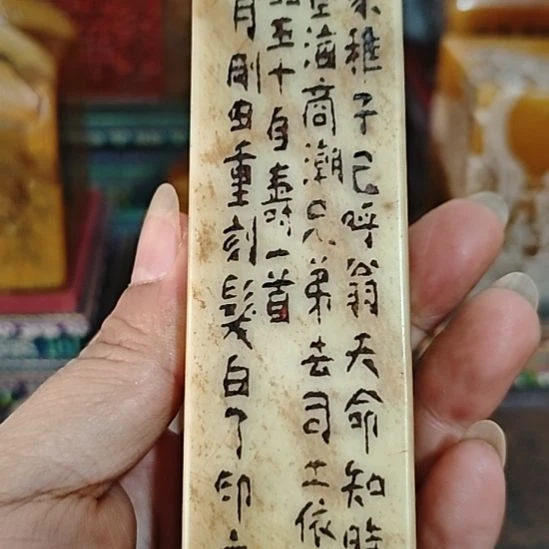 稚子已呼翁天命知時
海商潮兄弟去司土依
五十自壽一首
月剛由重刻髮白了印